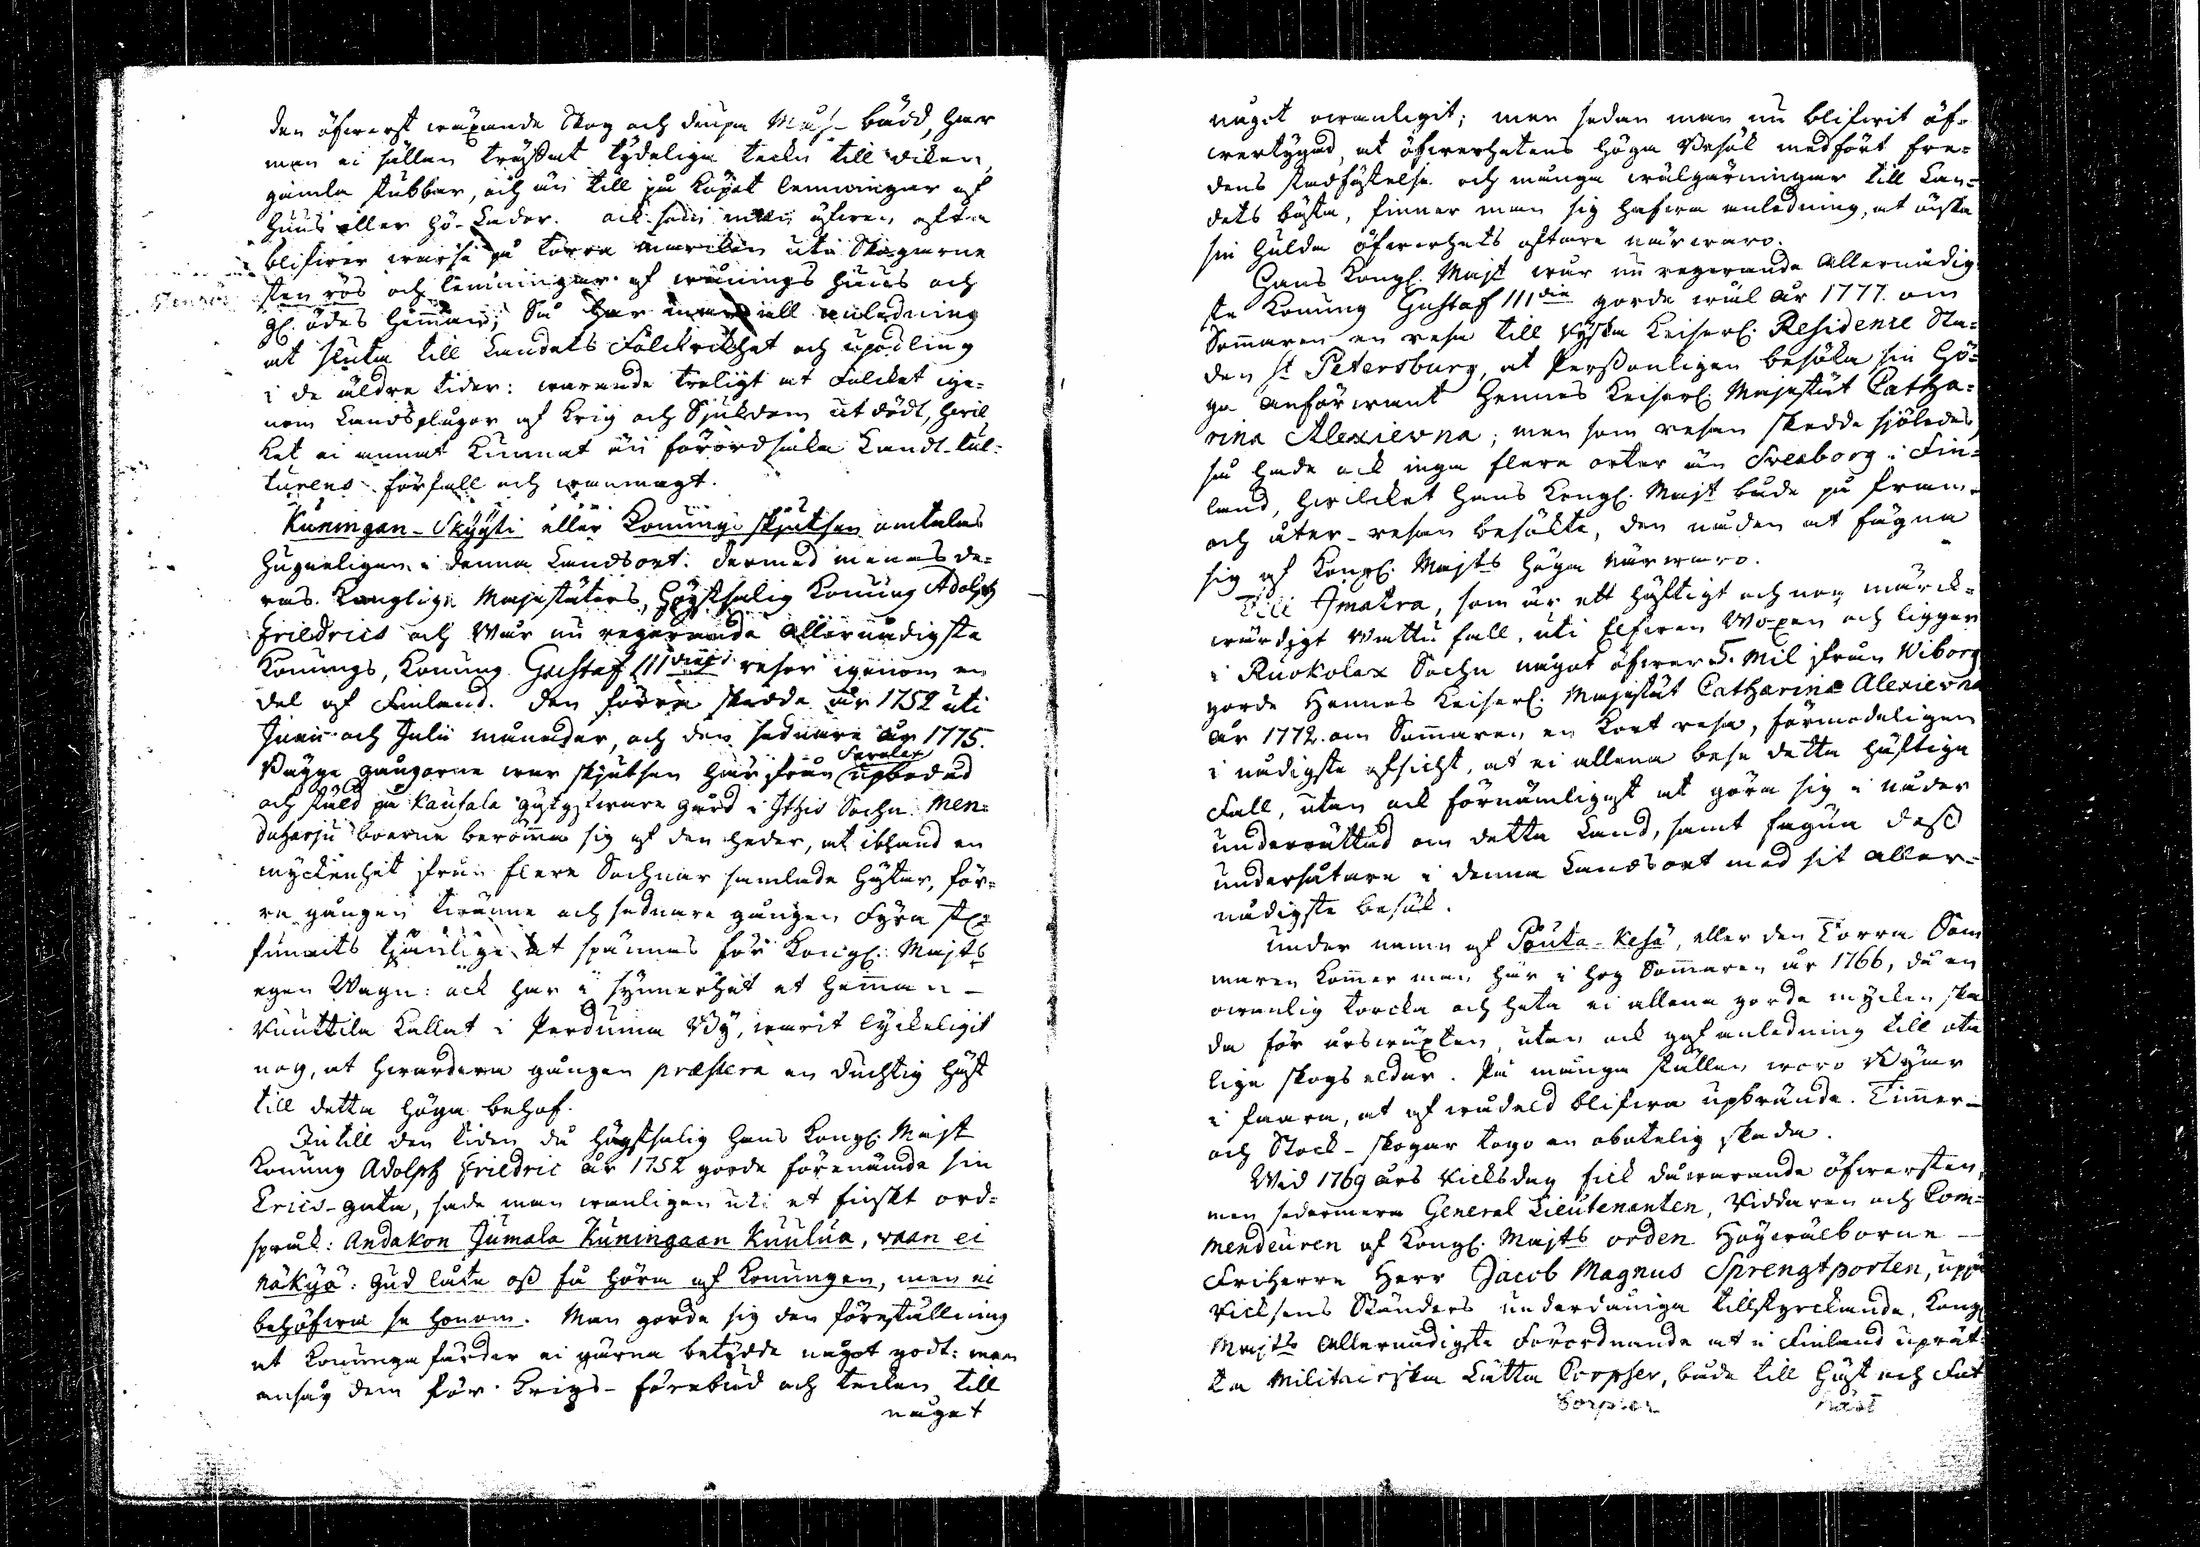 den öfwerst wäxande Skog och diupa Muß-bädd, har
man ei sällan träffat tydeliga tecken till diken,
gamla stubbar, och än till på köpet lemningar af
huus eller Hö-Lador. ack som man äfwen ofta
blifwer warse på torra marken uti Skogarne
sten rös och lemningar af wånings huus och
gl. ödes hemman; Så har man all anledning
at sluta till Landets Folckrikhet och upodling
i de äldre tider: warande troligt at Folcket ige-
nom Landsplågor af krig och Sjukdom ut dödt, hwil
ket ei annat kunnat än förordsaka Landt-Cul-
turens förfall och wanmagt.
Kuningan-Skyyti eller Konungs skjutsen omtalas
hugneligen i denna Landsort: dermed menas de-
ras Konglige Majestäters, Högstsalig Konung Adolph
Friedrics och Wår nu regerande Allernådigste
Konungs, Konung Gustaf III dies resor igenom en
del af Finland. Den förra skedde år 1752 uti
Junii och Julii månader, och den sednare år 1775.
Bägge gångorne war skjutsen här ifrån Savolax upbodad
och stäld på Kausala gästgifware gård i Ithis Sochn. Men-
duharju boerne berömma sig af den heder, at ibland en
myckenhet ifrån flere Sochnar samlade hästar, för-
ra gången twänne och sednare gången Fyra st
funnits tjänlige at spännas för Kongl. Majts
egen Wagn: ack har i synnerhet et hemman
Ruuttila kallat i Perduma By, warit lyckeligit
nog, at hwardera gången præstera en duchtig häst
till detta höga behof.
In till den tiden då högstsalig Hans Kongl. Majt
Konung Adolph Friedric år 1752 gorde förenämde sin
Erics-gata, sade man wanligen uti et finskt ord-
språk: Andakon Jumala Kuningaan Kuulua, vaan ei
näkyä: Gud låte oß få höra af Konungen, men ei
behöfwa se honom. Man gorde sig den föreställning
at Konunga färder ei gärna betydde något godt: man
ansåg dem för Krigs-förebud och tecken till
något
något owanligit; men sedan man nu blifwit öf-
wertygad, at öfwerhetens höga Besök medfört fre-
dens stadfästelse och många wälgärningar till Lan-
dets bästa, finner man sig hafwa anledning, at önska
sin hulda öfwerhets oftare närwaro.
Hans Kongl. Majt wår nu regerande Allernådig
ste Konung Gustaf III die gorde wäl år 1777. om
Sommaren en resa till Ryska Keiserl. Residence Sta-
den St Petersburg, at Perßonligen besöka sin hö-
ga Anförwant Hennes Keiserl. Majestät Catha-
rina Alexievna; men som resan skedde sjöledes,
så hade ack inga flere orter än Sveaborg i Fin-
land, hwilcket Hans Kongl. Majt både på fram
och åter-resan besökte, den nåden at fägna
sig af Kongl. Majts höga närwaro.
Till Imatra, som är ett häftigt och nog märck-
wärdigt wattu fall, uti Elfwen Woxen och ligger
i Ruokolax Sochn något öfwer 5. Mil ifrån Wiborg
gorde Hennes Keiserl. Majestät Catharina Alexievna
år 1772. om Sommaren en kort resa, förmodeligen
i nådigste afsicht, at ei allena bese detta häftiga
Fall, utan ack förnämligast at göra sig i nåder
underrättad om detta Land, samt fägna deß
undersåtare i denna Landsort med sit aller-
nådigste besök.
Under namn af Pouta-Kesä, eller den Torra Som
maren kommer man här i hog Sommaren år 1766, då en
owanlig torcka och heta ei allena gorde mycken ska
da för årswäxten, utan ack gaf anledning till otä
lige skogs eldar. På många ställen woro Byar
i faara, at af wådeld blifwa upbrände. Timmer-
och Stock-skogar togo en obotelig skada.
Wid 1769 års Ricksdag fick dåwarande öfwersten,
men sedermera General Lieutenanten, Riddaren och Com-
mendeuren af Kongl. Majts orden Högwälborne
Friherre Herr Jacob Magnus Sprengtporten, uppå
Ricksens Ständers underdåniga tillstyrckande, Kongl
Majts Allernådigste Förordnande at i Finland uprät-
ta Militairiska Lätta Corpser, både till Häst och Fot
Corpser